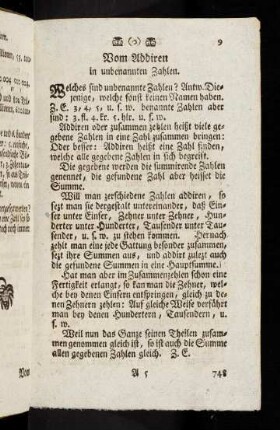 (o) 9
Vom Addiren
in unbenannten Zahlen.
Welches sind unbenannte Zahlen? Antw. Die-
jenige, welche sonst keinen Namen haben.
Z. E. 3, 4, 5, u. s. w. benannte Zahlen aber
sind: 3. fl. 4. kr. 5. hlr. u. s. w.
Addiren oder zusammen zählen heißt viele ge-
gebene Zahlen in eine Zahl zusammen bringen:
Oder besser: Addiren heißt eine Zahl finden,
welche alle gegebene Zahlen in sich begreift.
Die gegebene werden die summirende Zahlen
genennet, die gefundene Zahl aber heisset die
Summe.
Will man zerschiedene Zahlen addiren, so
setzt man sie dergestalt untereinander, daß Ein-
ser unter Einser, Zehner unter Zehner, Hun-
derter unter Hunderter, Tausender unter Tau-
sender, u. s. w. zu stehen kommen. Hernach
zählt man eine jede Gattung besonder zusammen,
setzt ihre Summen aus, und addirt zulezt auch
die gefundene Summen in eine Hauptsumme.
Hat man aber im Zusammenzehlen schon eine
Fertigkeit erlangt, so kan man die Zehner, wel-
che bey denen Einsern entspringen, gleich zu de-
nen Zehnern zählen: Auf gleiche Weise verfährt
man bey denen Hundertern, Tausendern, u.
s. w.
Weil nun das Ganze seinen Theilen zusam-
mengenommen gleich ist, so ist auch die Summe
allen gegebenen Zahlen gleich. Z. E.
A 5 748